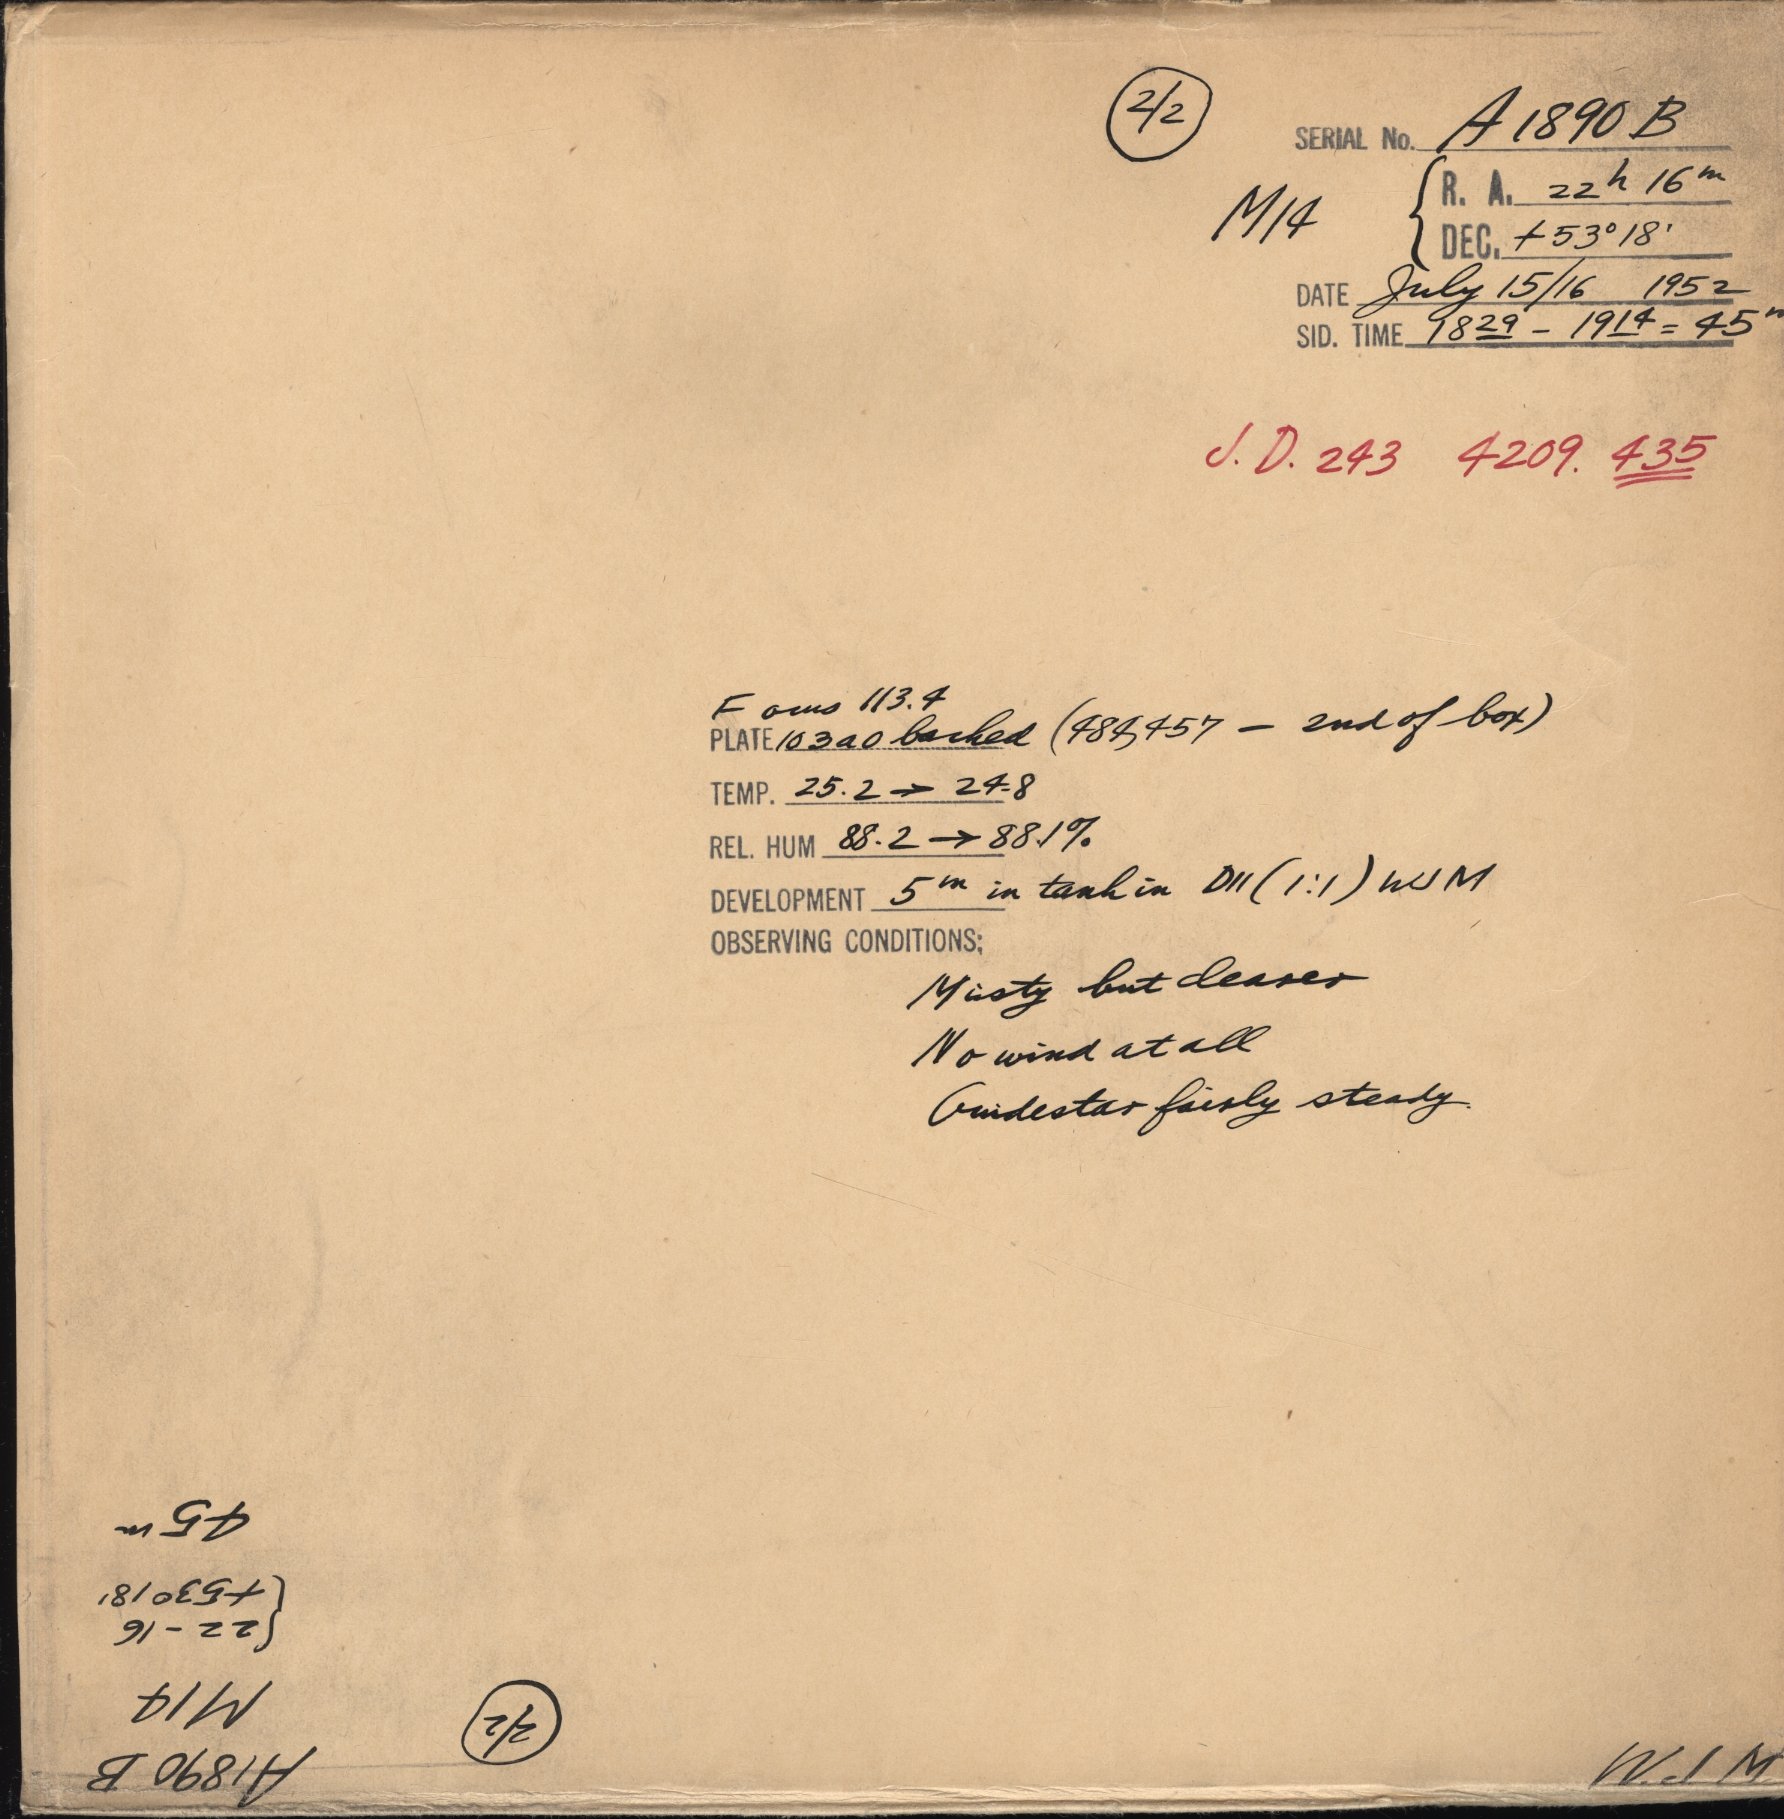 2/2
SERIAL No. A1890B
M14
R. A. 22h 16m
DEC. +53°18'
DATE July 15/16 1952
SID. TIME 1829 - 1914 = 45m
J.D. 243 4209.435
Focus 113.4
PLATE 103aO backed (484,457 - end of box)
TEMP. 25.2 → 24.8
REL. HUM 88.2 → 88.1%
DEVELOPMENT 5m in tank in D11 (1:1) WJM
OBSERVING CONDITIONS;
Misty but clearer
No wind at all
Guidestar fairly steady.
A1890B
M14
22 - 16
+53°18'
45m
2/2
W.J M